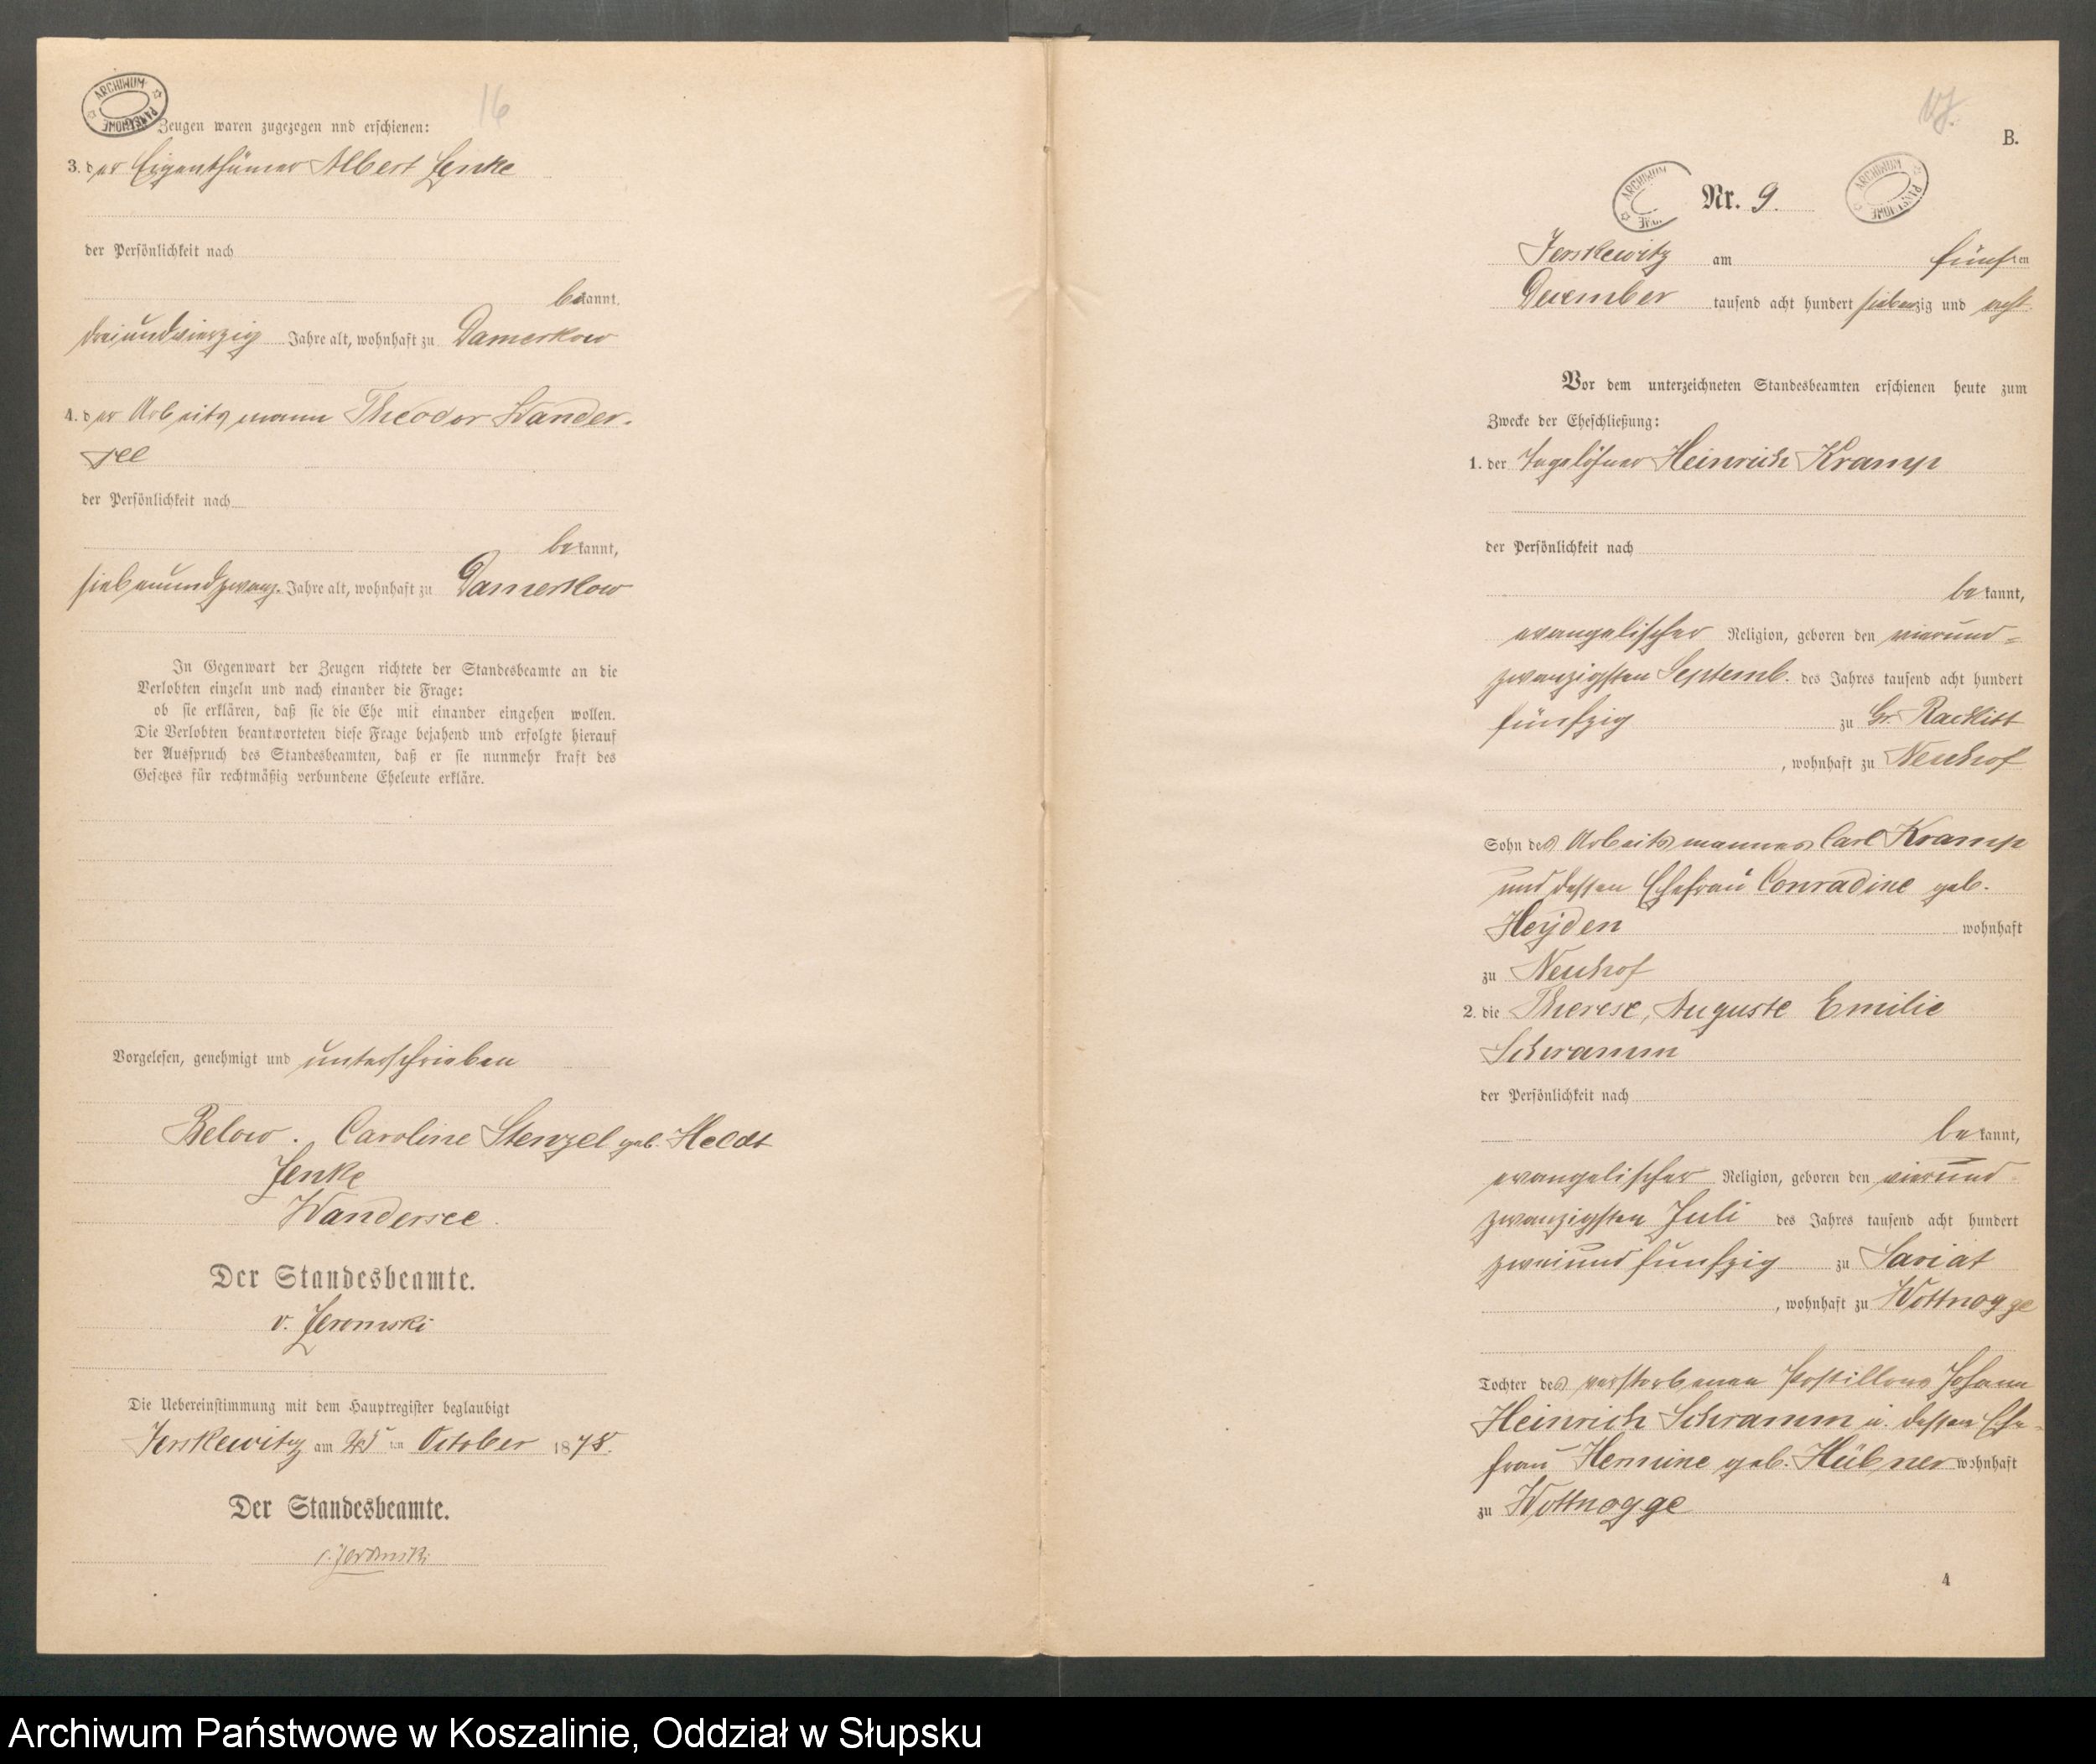 16
Zeugen waren zugezogen und erschienen:
3. der Eigenthümer Albert Jenke
der Persönlichkeit nach
bekannt,
dreiundvierzig Jahre alt, wohnhaft zu Damerkow
4. der Arbeitsmann Theodor Wander-
see
der Persönlichkeit nach
bekannt,
siebenundzwanz. Jahre alt, wohnhaft zu Damerkow
In Gegenwart der Zeugen richtete der Standesbeamte an die
Verlobten einzeln und nach einander die Frage:
ob sie erklären, daß sie die Ehe mit einander eingehen wollen.
Die Verlobten beantworteten diese Frage bejahend und erfolgte hierauf
der Ausspruch des Standesbeamten, daß er sie nunmehr kraft des
Gesetzes für rechtmäßig verbundene Eheleute erkläre.
Vorgelesen, genehmigt und unterschrieben
Below. Caroline Stenzel geb. Heldt
Jenke
Wandersee.
Der Standesbeamte.
v. Jeromski
Die Uebereinstimmung mit dem Hauptregister beglaubigt
Jerskewitz am ten October 1878.
Der Standesbeamte.
v. Jeromski
ARCHIWUM PAŃSTWOWE
B.
Nr. 9.
Jerskewitz am fünften
December tausend acht hundert siebenzig und acht
Vor dem unterzeichneten Standesbeamten erschienen heute zum
Zwecke der Eheschließung:
1. der Tagelöhner Heinrich Kramp
der Persönlichkeit nach
bekannt,
evangelischer Religion, geboren den vierund-
zwanzigsten Septemb. des Jahres tausend acht hundert
fünfzig zu Gr. Rackitt
, wohnhaft zu Neuhof
Sohn des Arbeitsmannes Carl Kramp
und dessen Ehefrau Conradine geb.
Heyden wohnhaft
zu Neuhof
2. die Therese, Auguste Emilie
Schramm
der Persönlichkeit nach
bekannt,
evangelischer Religion, geboren den vierund
zwanzigsten Juli des Jahres tausend acht hundert
zweiundfünfzig zu Sariat
, wohnhaft zu Wottnogge
Tochter des verstorbenen Postillons Johann
Heinrich Schramm u. dessen Ehe-
frau Hermine geb. Hübner wohnhaft
zu Wottnogge
4
Archiwum Państwowe w Koszalinie, Oddział w Słupsku